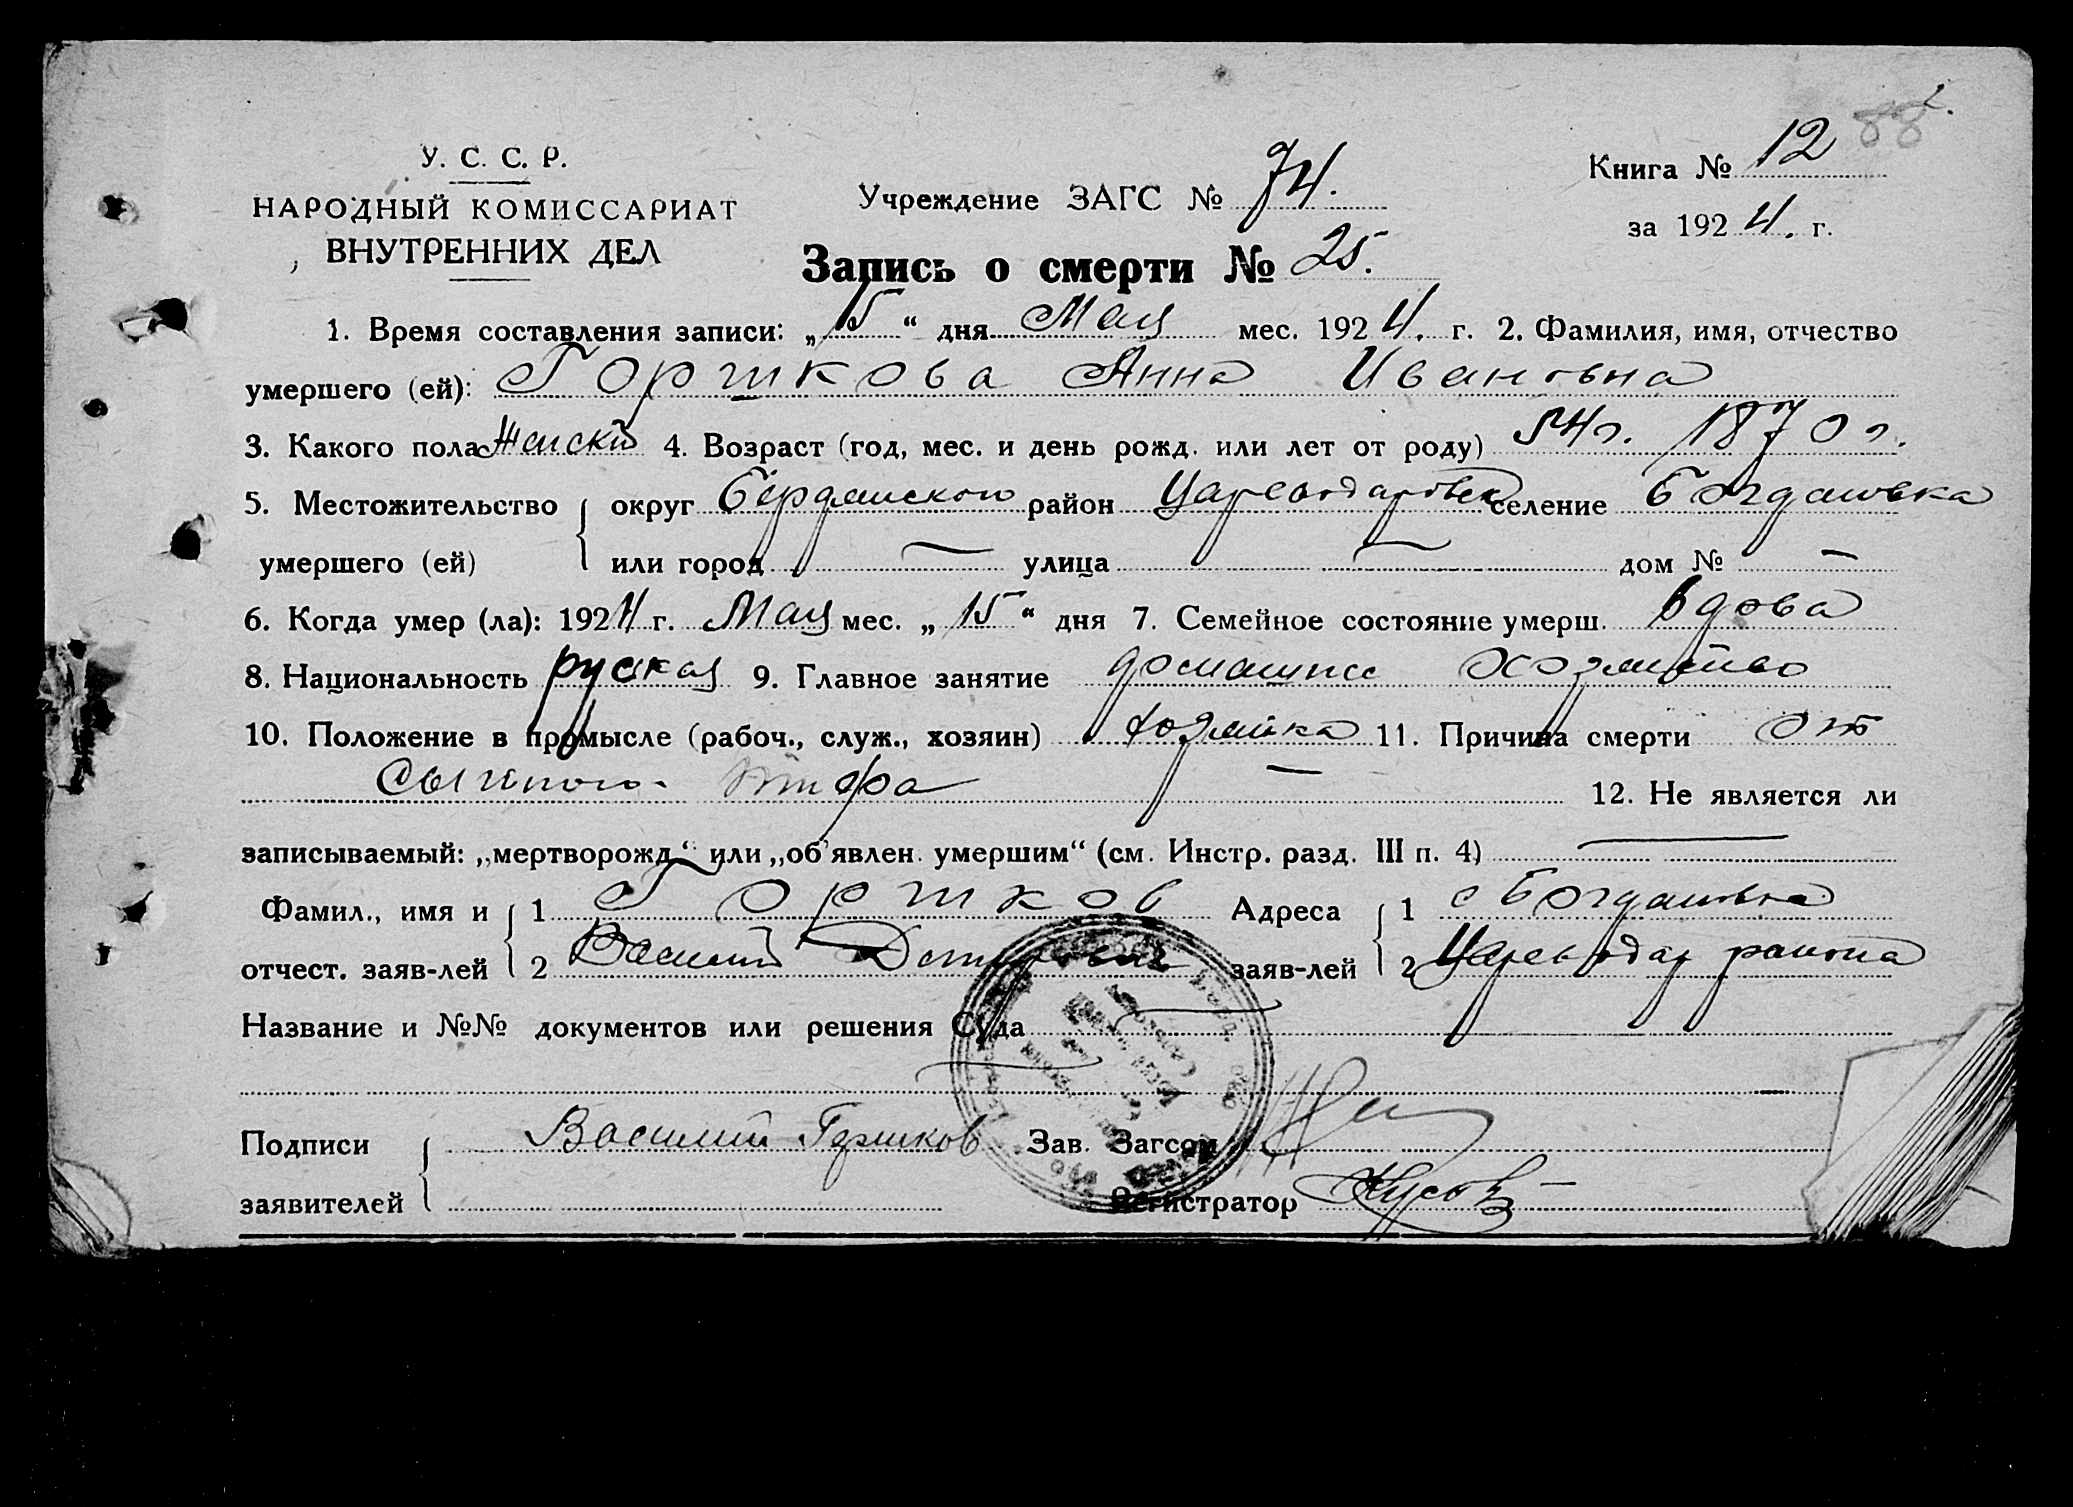 88
У. С. С. Р.
НАРОДНЫЙ КОМИССАРИАТ
ВНУТРЕННИХ ДЕЛ
Учреждение ЗАГС № 74.
Книга № 12
за 1924. г.
Запись о смерти № 25.
1. Время составления записи: „15“ дня Мая мес. 1924. г. 2. Фамилия, имя, отчество
умершего (ей): Горшкова Анна Ивановна
3. Какого пола Женски 4. Возраст (год, мес. и день рожд. или лет от роду) 54 г. 1870 г.
5. Местожительство округ Бердянского район Цареводаровск селение Богдановка
умершего (ей) или город — улица — дом № —
6. Когда умер (ла): 1924 г. Мая мес. „15“ дня 7. Семейное состояние умерш. вдова
8. Национальность руская 9. Главное занятие домашнее хозяйство
10. Положение в промысле (рабоч., служ., хозяин) хозяйка 11. Причина смерти от
Сыпного тифа — 12. Не является ли
записываемый: „мертворожд.“ или „об'явлен. умершим“ (см. Инстр. разд. III п. 4) —
Фамил., имя и 1 Горшков Адреса 1 с Богдановка
отчест. заяв-лей 2 Василий заяв-лей 2 Цареводар района
Название и №№ документов или решения Суда —
Подписи Василий Горшков Зав. Загсом
заявителей Регистратор